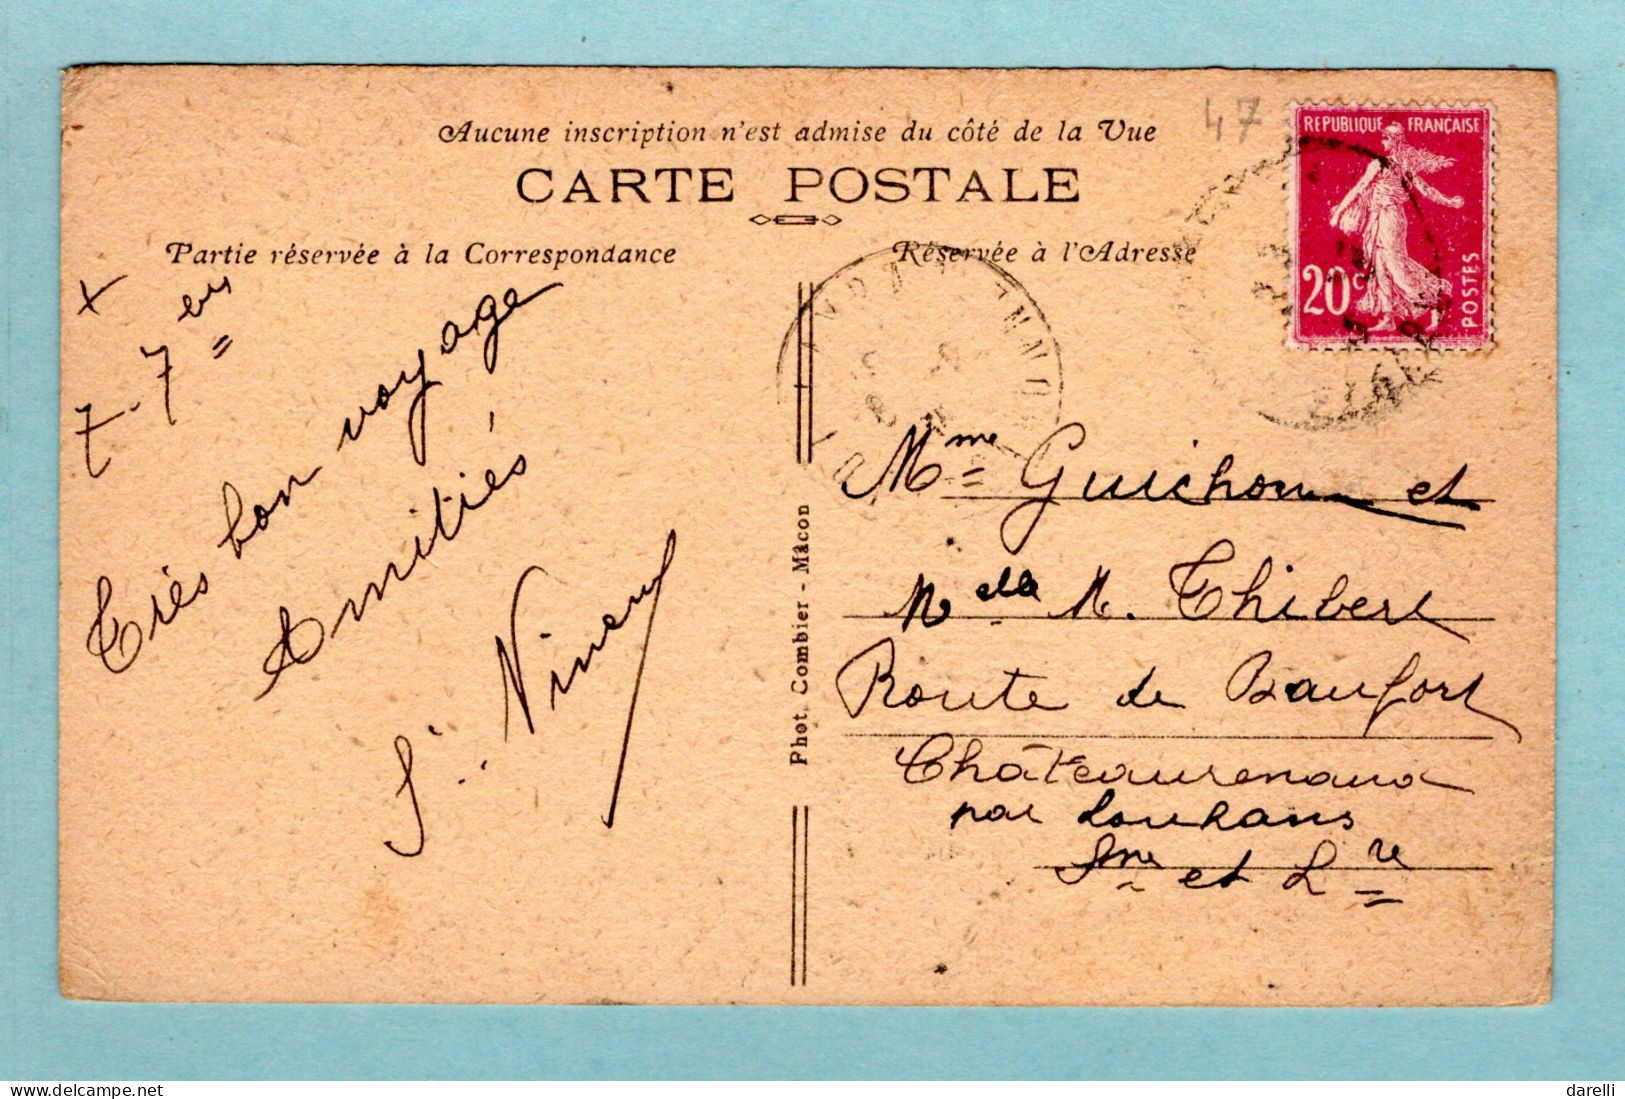 47
REPUBLIQUE FRANÇAISE
20c
POSTES
Aucune inscription n'est admise du côté de la Vue
CARTE POSTALE
Partie réservée à la Correspondance
Réservée à l'Adresse
Très bon voyage
Amitiés
Phot. Combier - Mâcon
Mme Guichon et
Melle M. Thibert
Route de Beaufort
Châteaurenaud
par Louhans
Sne et Lre
darelli